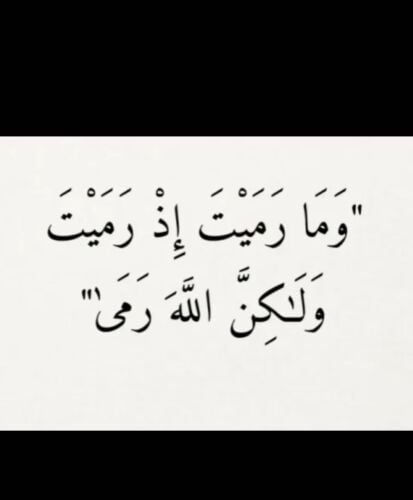 "وَمَا رَمَيْتَ إِذْ رَمَيْتَ
وَلَٰكِنَّ اللَّهَ رَمَىٰ"